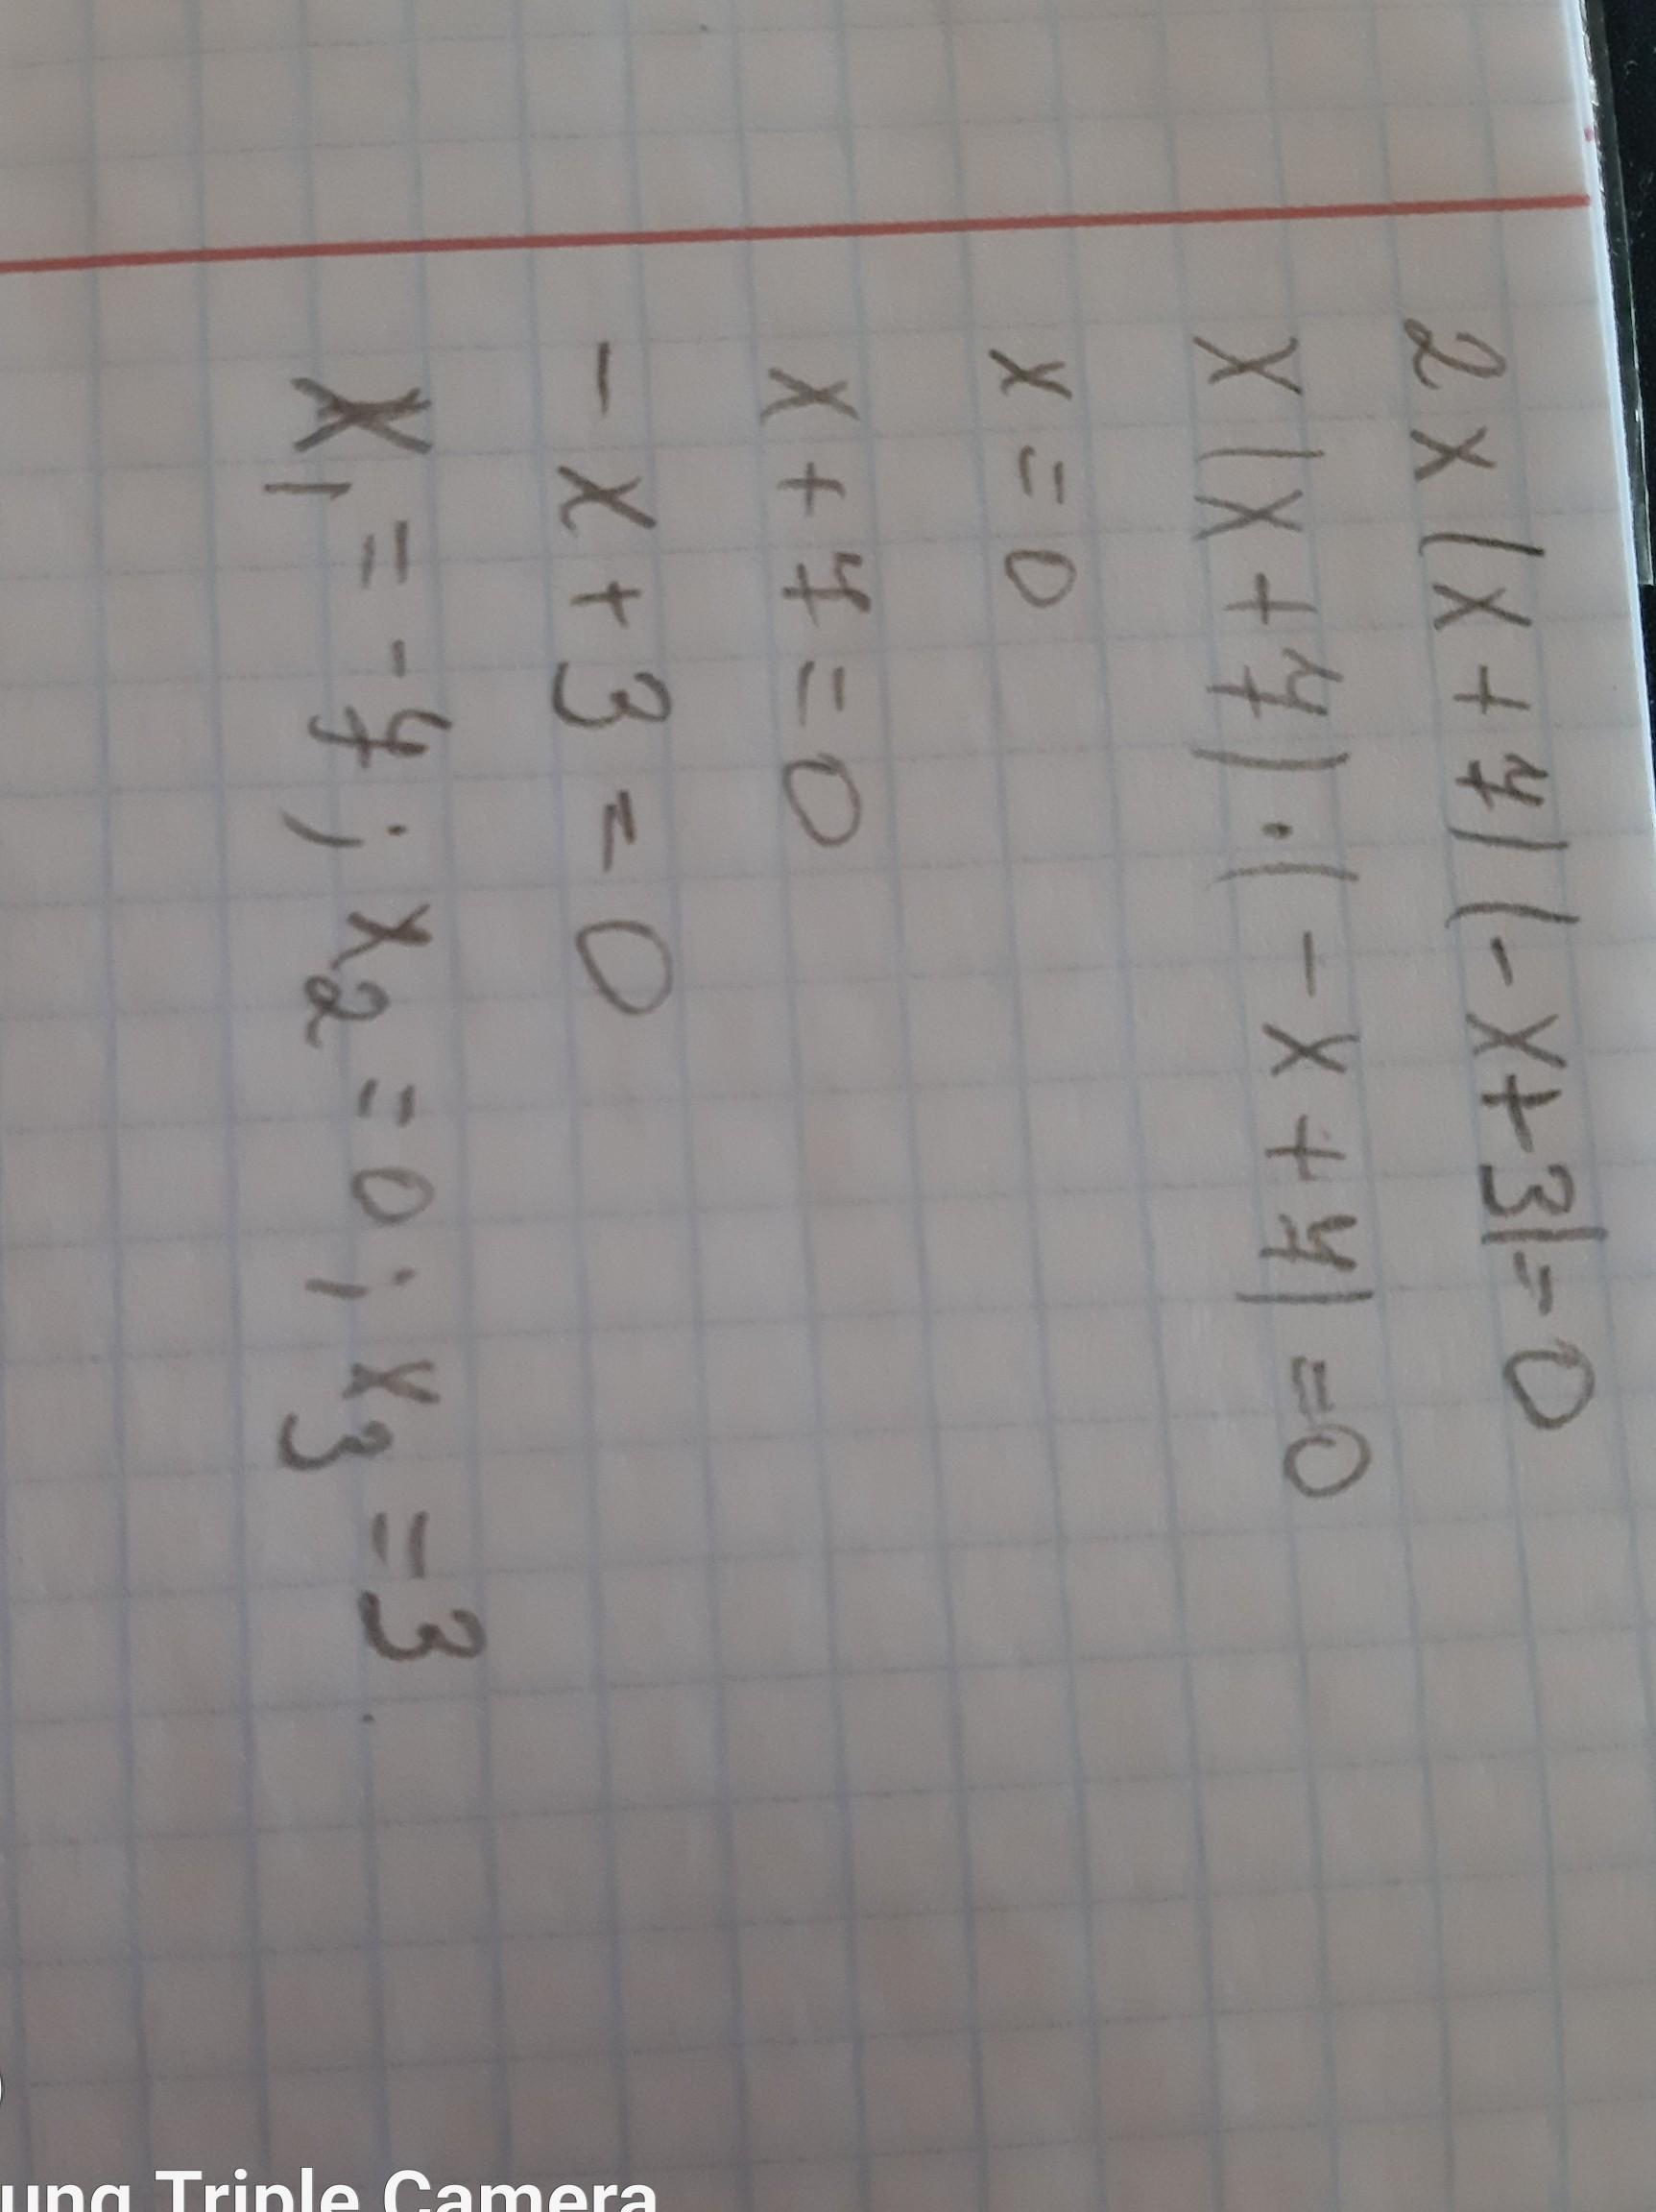 2x|x+4||-x+3|=0
x|x+4|·|-x+4|=0
x=0
x+4=0
-x+3=0
x₁=-4; x₂=0; x₃=3
ung Triple Camera